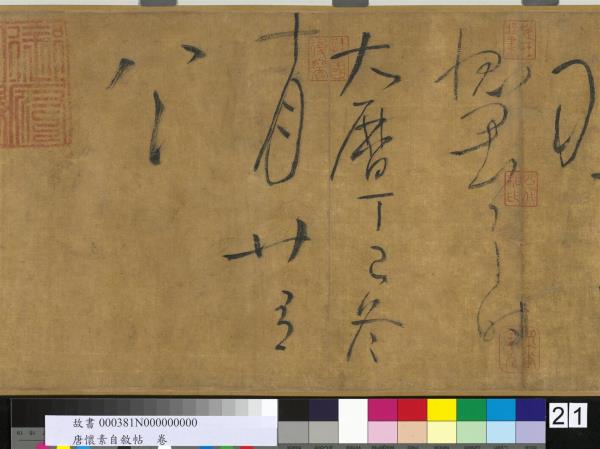 愧畏耳時
大曆丁巳冬
十月廿有
八日
故書 000381N000000000
唐懷素自敘帖 卷
21